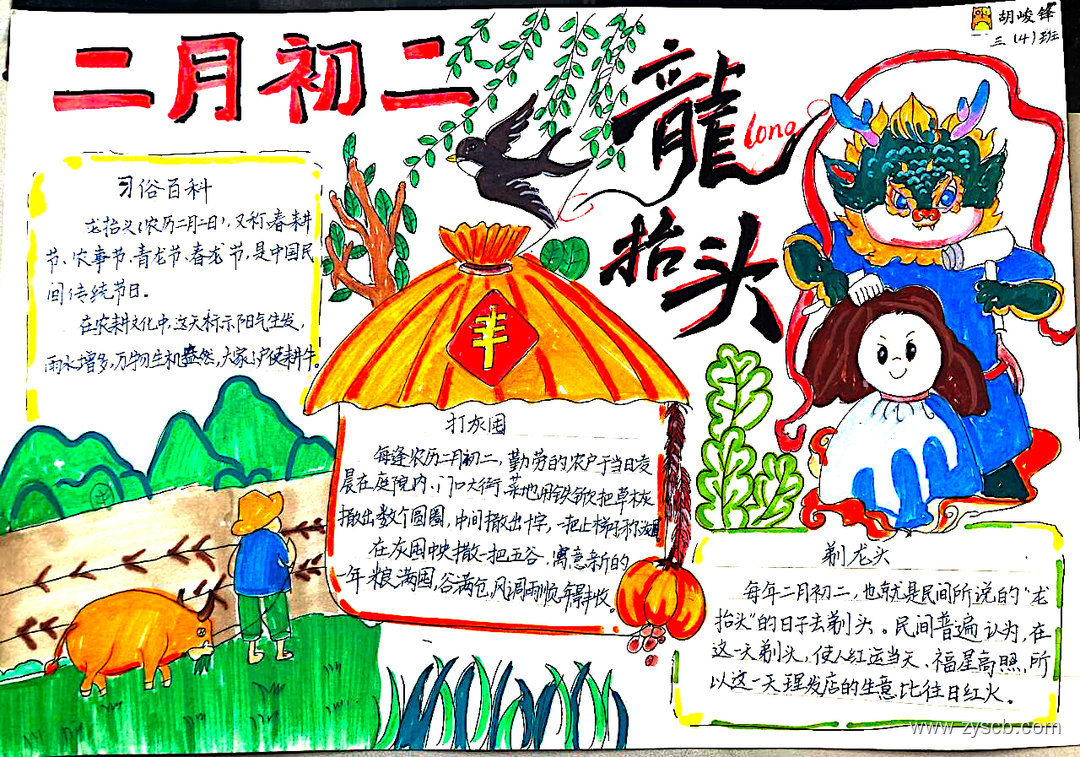 二月初二
龍
long
抬头
胡峻锋
三(4)班
习俗百科
龙抬头(农历二月二日), 又称春耕
节、农事节、青龙节、春龙节, 是中国民
间传统节日。
在农耕文化中, 这天标示阳气生发,
雨水增多, 万物生机盎然, 大家户使耕牛。
丰
打灰囤
每逢农历二月初二, 勤劳的农户于当日凌
晨在庭院内、门口大街、菜地用铁锨把草木灰
撒出数个圆圈, 中间撒出十字, 一把上
在灰囤中央撒一把五谷, 寓意新的
一年粮满囤, 谷满仓, 风调雨顺, 年年丰收。
剃龙头
每年二月初二, 也就是民间所说的“龙
抬头”的日子去剃头。民间普遍认为, 在
这一天剃头, 使人红运当天、福星高照, 所
以这一天理发店的生意比往日红火。
www.zyscb.com